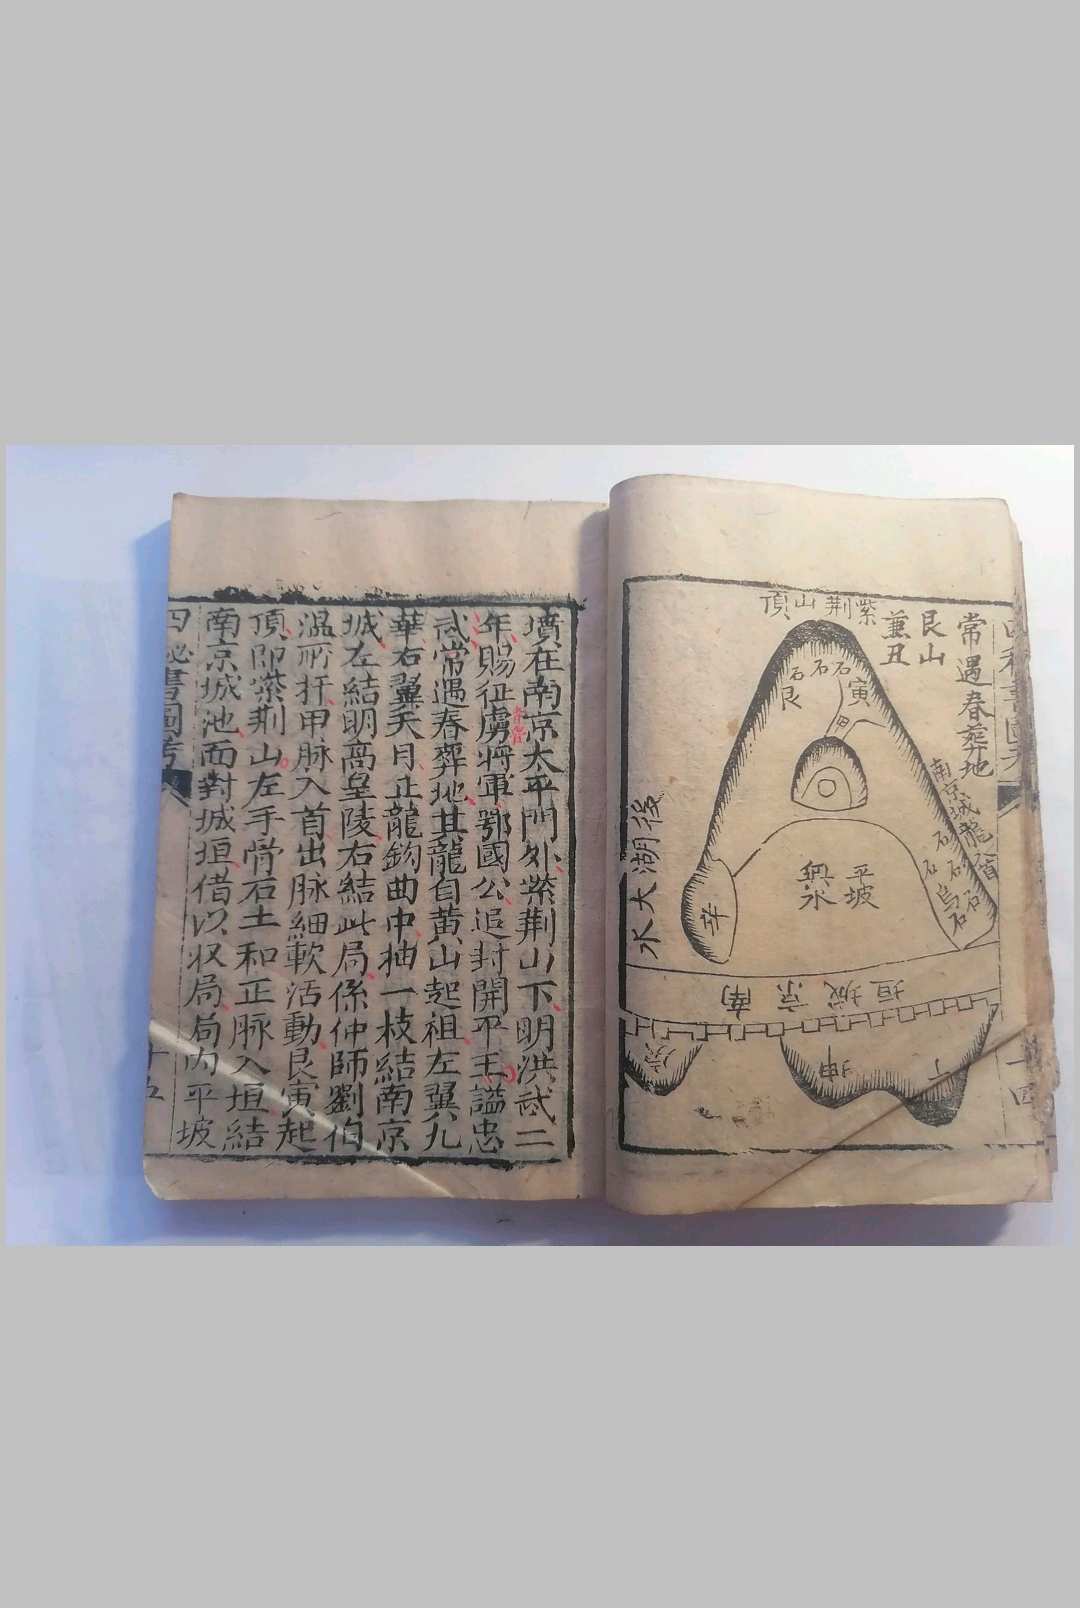 常遇春葬地
艮山
兼丑
紫荆山頂
石石石石
艮
寅
甲
辛
平坡
興水
南京城龍首
石石石石石
烏石
後湖大水
南京城垣
坤
丁
墳在南京太平門外紫荆山下明洪武二
年賜征虜將軍鄂國公追封開平王謚忠
武常遇春葬地其龍自黃山起祖左翼九
華右翼天目正龍鈎曲中抽一枝結南京
城左結明高皇陵右結此局係仲師劉伯
温所扦甲脉入首出脉細軟活動艮寅起
頂即紫荆山左手骨石土和正脉入垣結
南京城池面對城垣借以收局局内平坡
四秘書圖考
十五
十四